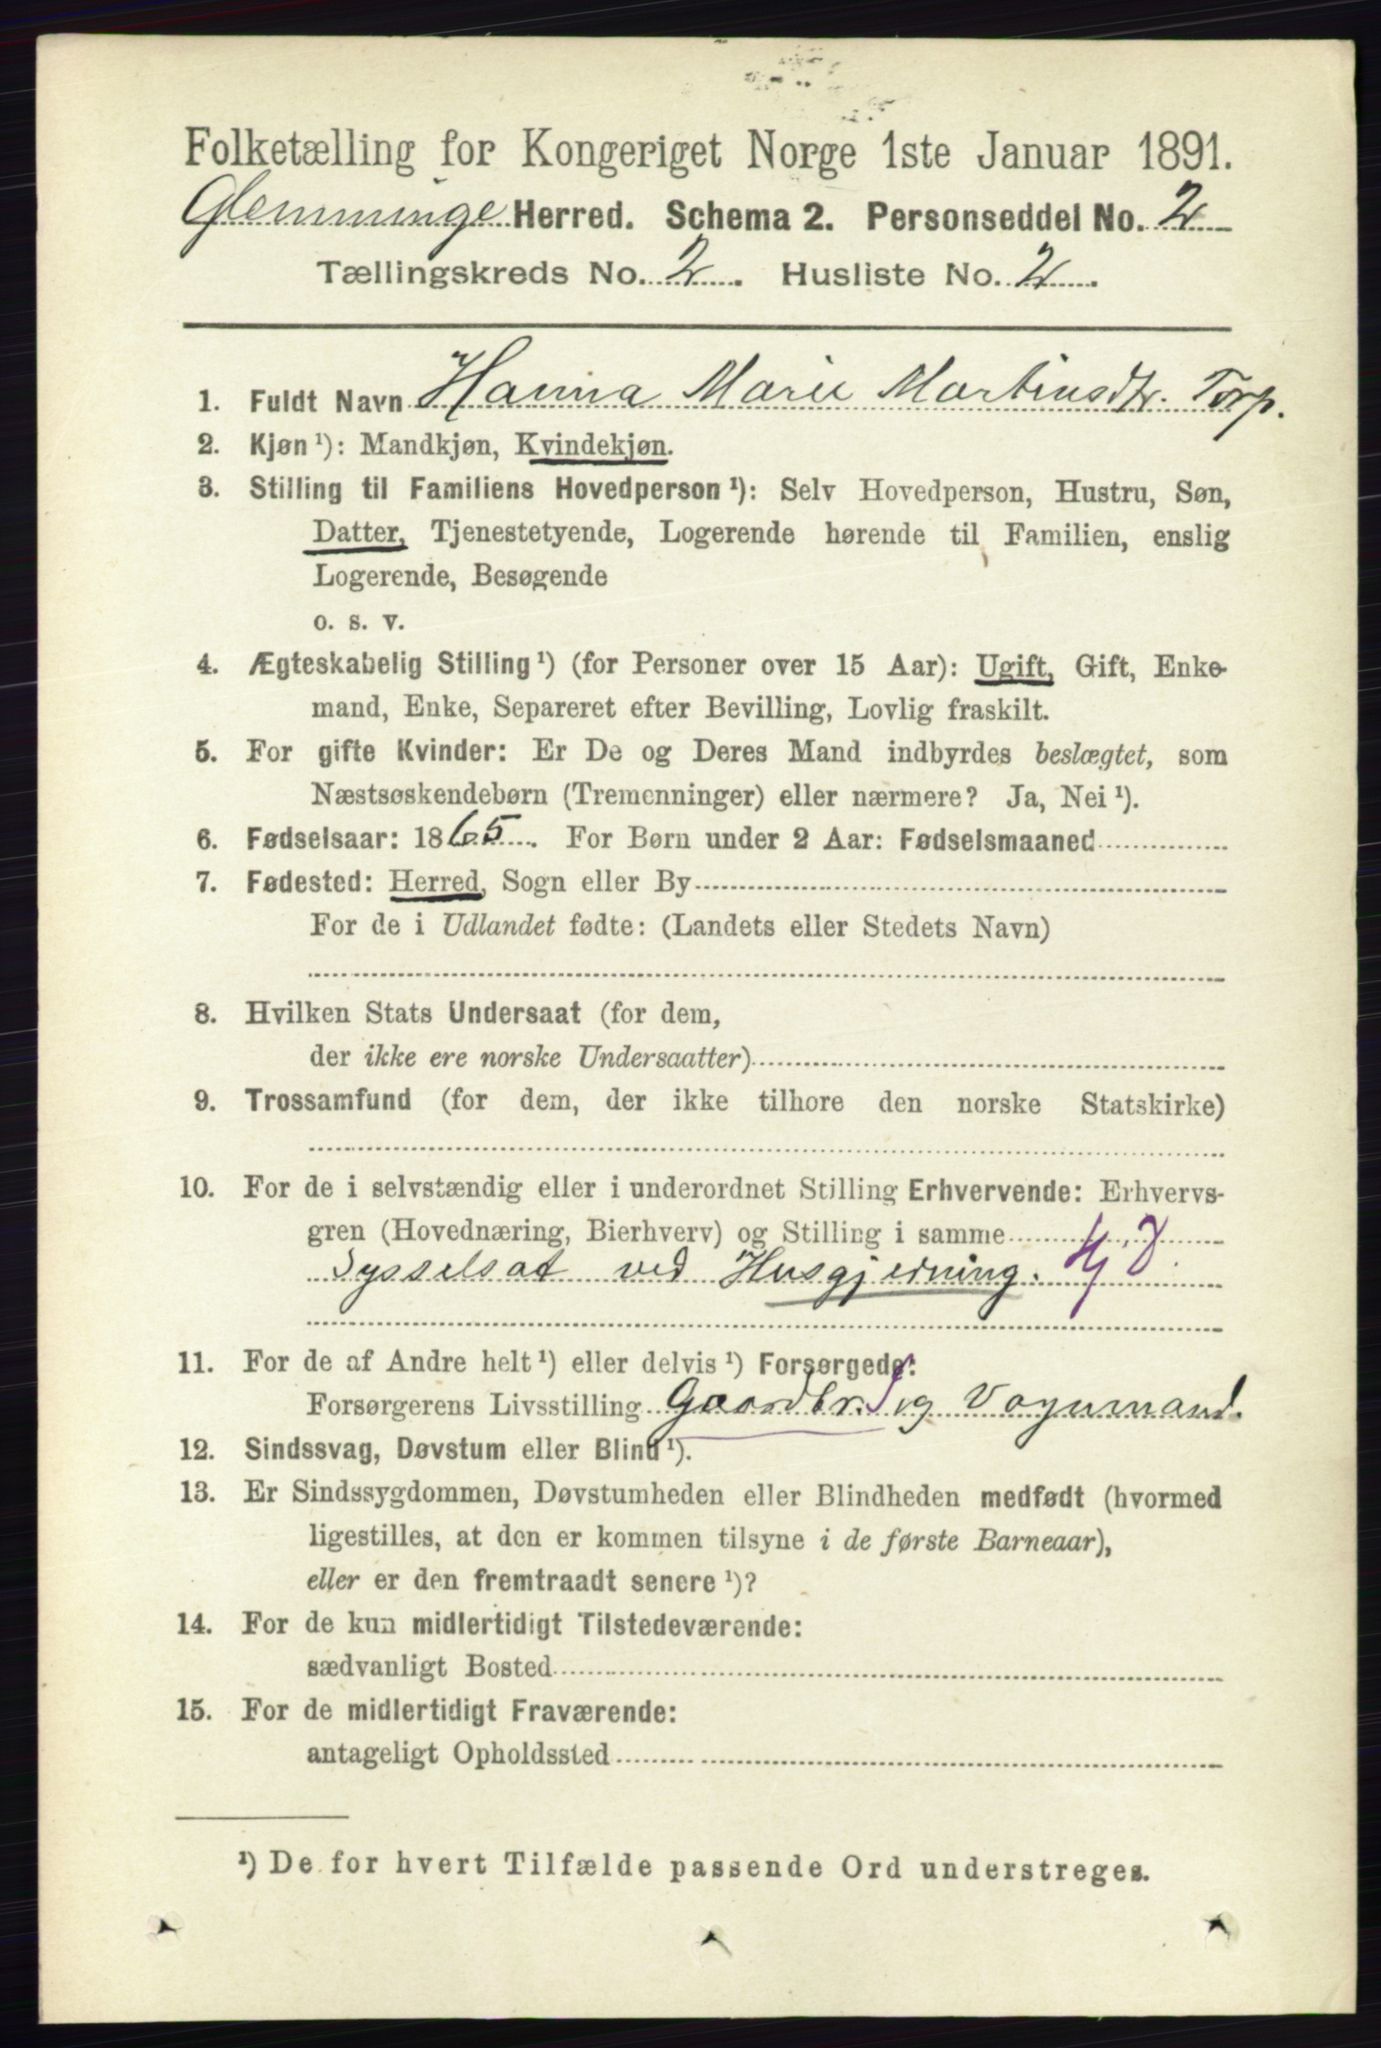 Folketælling for Kongeriget Norge 1ste Januar 1891.
Glemminge Herred. Schema 2. Personseddel No. 2
Tællingskreds No. 2. Husliste No. 2.
1. Fuldt Navn Hanna Marie Martinsdtr. Torp.
2. Kjøn ¹): Mandkjøn, Kvindekjøn.
3. Stilling til Familiens Hovedperson ¹): Selv Hovedperson, Hustru, Søn,
Datter, Tjenestetyende, Logerende hørende til Familien, enslig
Logerende, Besøgende
o. s. v.
4. Ægteskabelig Stilling ¹) (for Personer over 15 Aar): Ugift, Gift, Enke-
mand, Enke, Separeret efter Bevilling, Lovlig fraskilt.
5. For gifte Kvinder: Er De og Deres Mand indbyrdes beslægtet, som
Næstsøskendebørn (Tremenninger) eller nærmere? Ja, Nei ¹).
6. Fødselsaar: 1865. For Børn under 2 Aar: Fødselsmaaned
7. Fødested: Herred, Sogn eller By
For de i Udlandet fødte: (Landets eller Stedets Navn)
8. Hvilken Stats Undersaat (for dem,
der ikke ere norske Undersaatter)
9. Trossamfund (for dem, der ikke tilhøre den norske Statskirke)
10. For de i selvstændig eller i underordnet Stilling Erhvervende: Erhvervs-
gren (Hovednæring, Bierhverv) og Stilling i samme
Sysselsat ved Husgjerning.
11. For de af Andre helt ¹) eller delvis ¹) Forsørgede:
Forsørgerens Livsstilling Gaardbr. og Vognmand.
12. Sindssvag, Døvstum eller Blind ¹).
13. Er Sindssygdommen, Døvstumheden eller Blindheden medfødt (hvormed
ligestilles, at den er kommen tilsyne i de første Barneaar),
eller er den fremtraadt senere ¹)?
14. For de kun midlertidigt Tilstedeværende:
sædvanligt Bosted
15. For de midlertidigt Fraværende:
antageligt Opholdssted
¹) De for hvert Tilfælde passende Ord understreges.